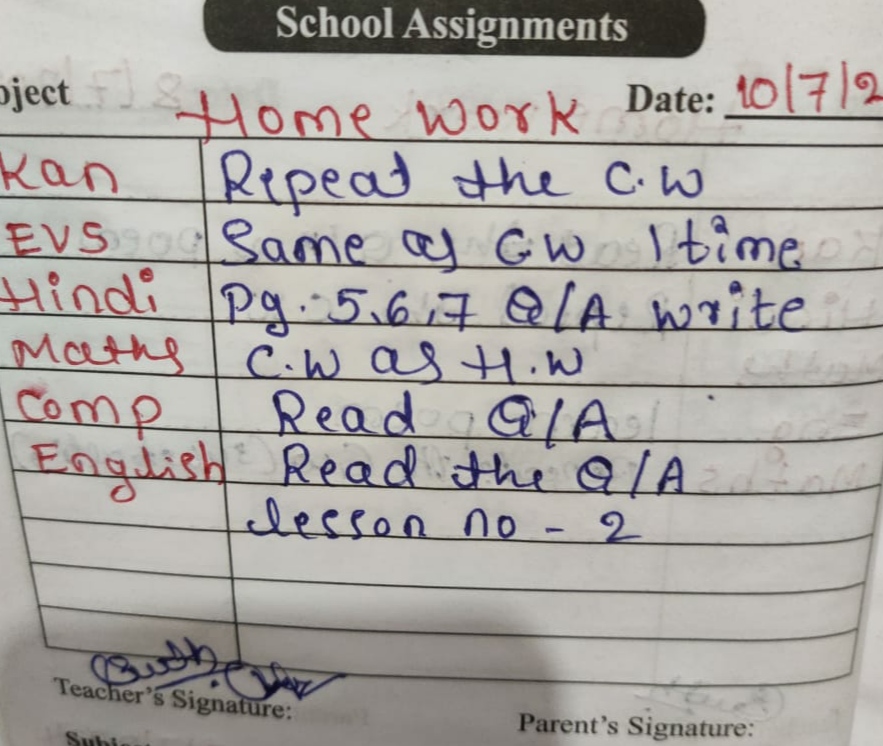 School Assignments
bject Home Work Date: 10/7/2
Kan Repeat the C.W
EVS Same as C.W 1 time
Hindi Pg. 5,6,7 Q/A write
Maths C.W as H.W
Comp Read Q/A
English Read the Q/A
lesson no - 2
Teacher's Signature:
Parent's Signature: